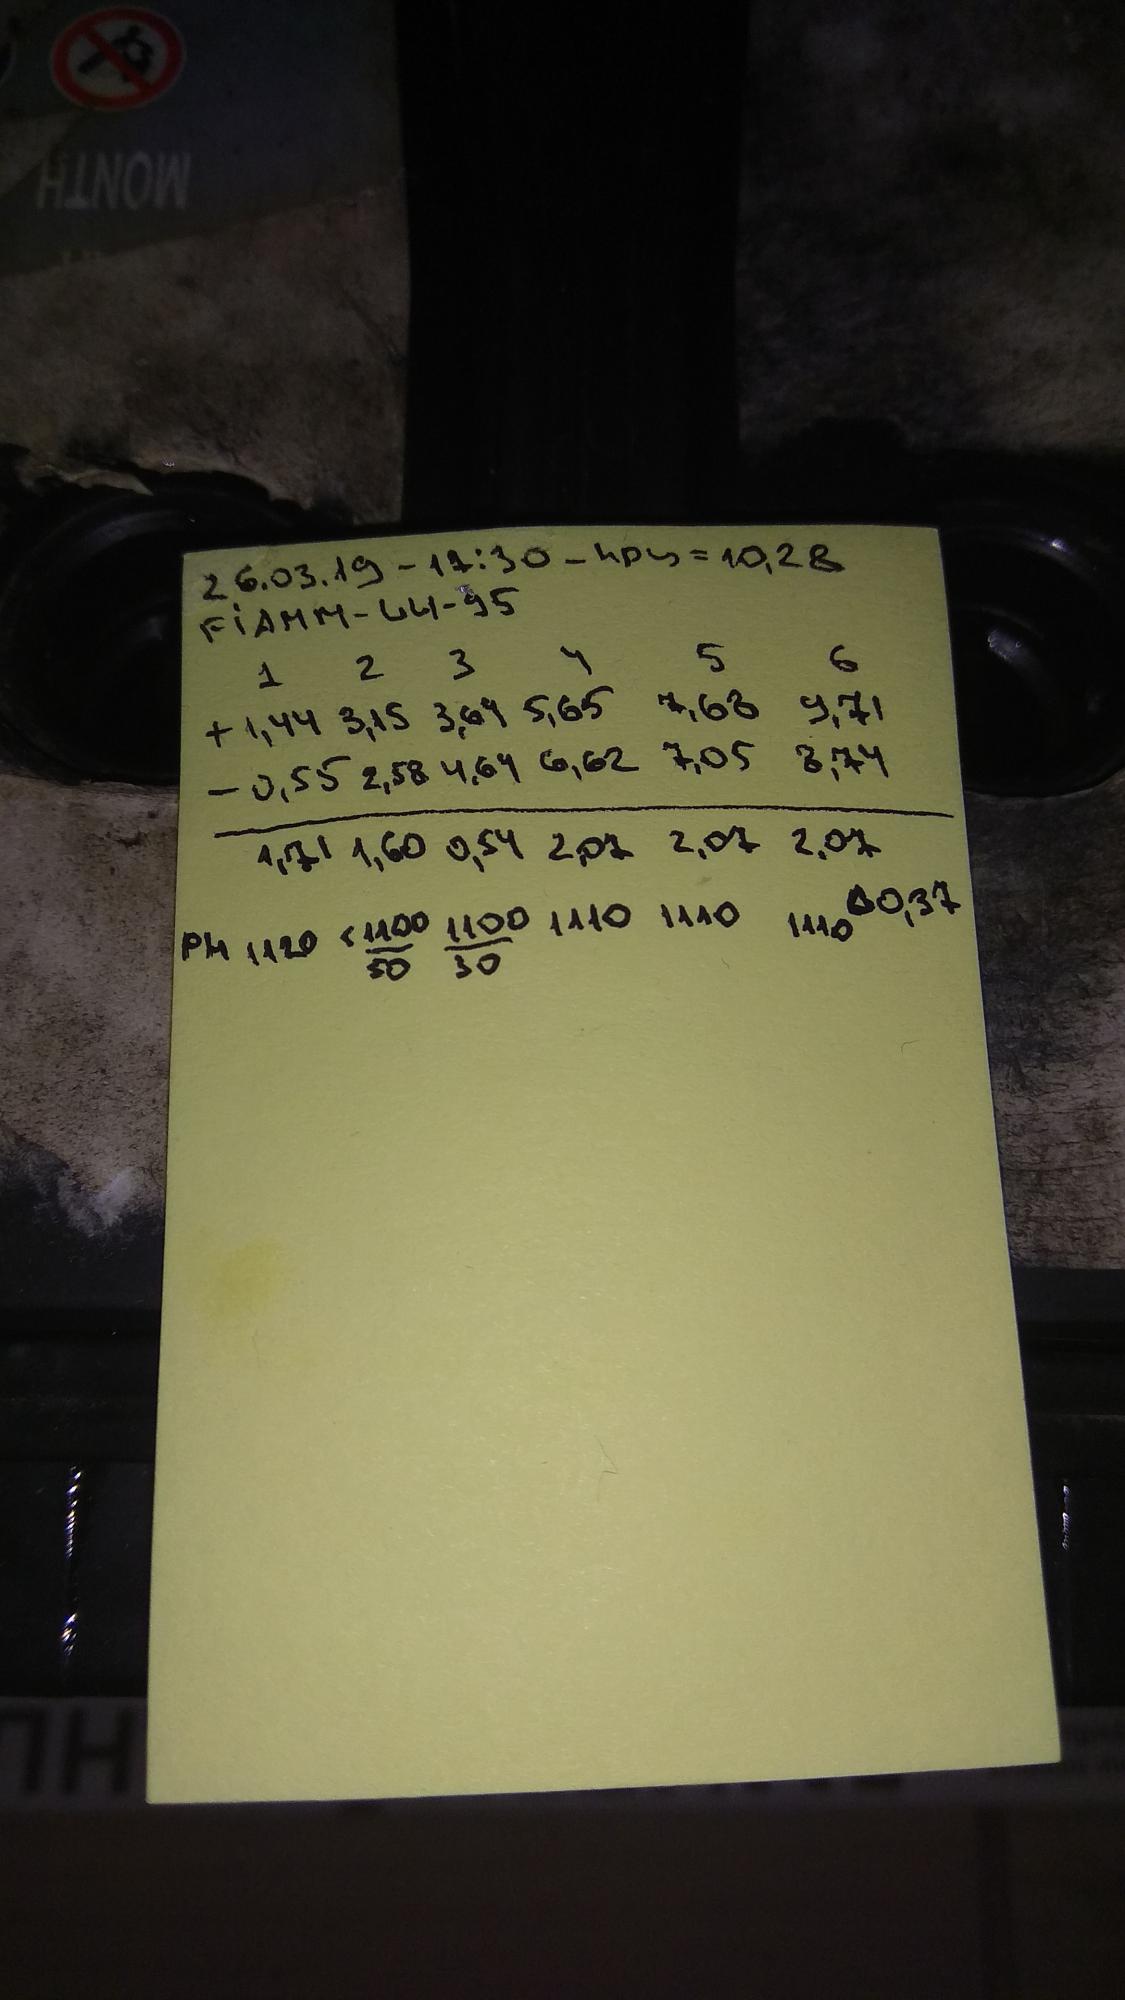 MONTH
26.03.19 - 17:30 - нрц = 10,28
FiAMM - UU - 95
1 2 3 4 5 6
+ 1,44 3,15 3,64 5,65 7,68 9,71
- 0,55 2,58 4,64 6,62 7,05 8,74
1,71 1,60 0,54 2,07 2,07 2,07
Δ0,37
РН 1120 <1100 1100 1110 1110 1110
50 30